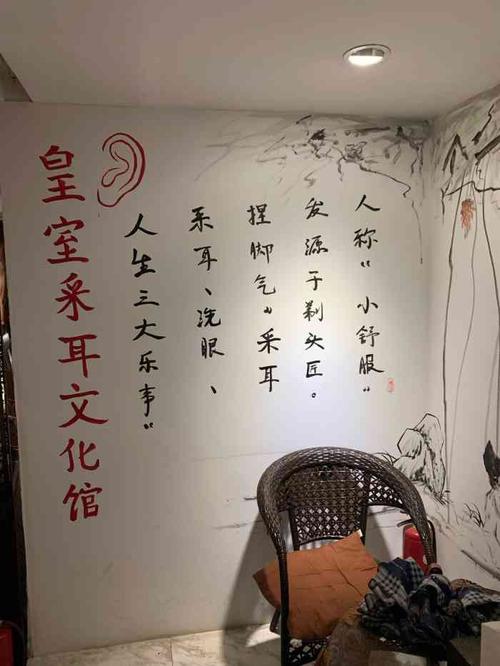 人称“小舒服”
发源于剃头匠。
捏脚气”采耳
采耳、洗眼、
人生三大乐事”
皇室采耳文化馆